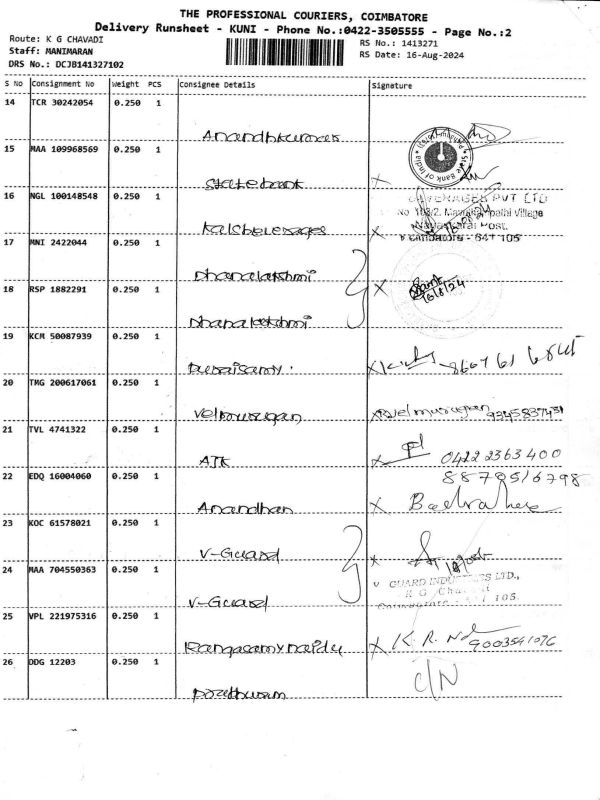 THE PROFESSIONAL COURIERS, COIMBATORE
Delivery Runsheet - KUNI - Phone No.:0422-3505555 - Page No.:2
Route: K G CHAVADI
RS No.: 1413271
Staff: MANIMARAN
RS Date: 16-Aug-2024
DRS No.: DCJB141327102
S No Consignment No Weight PCS Consignee Details Signature
14 TCR 30242054 0.250 1
Anandhkumar
15 MAA 109968569 0.250 1
State Bank of India
State bank X
16 NGL 100148548 0.250 1
BEVERAGES PVT LTD
Village
Post.
Kals beverages X
Coimbatore - 641 105
17 MNI 2422044 0.250 1
Dhanalakshmi
18 RSP 1882291 0.250 1 X
16/8/24
Dhanalakshmi
19 KCM 50087939 0.250 1
Duraisamy. X
20 TMG 200617061 0.250 1
Velmurugan X Velmurugan 9345837431
21 TVL 4741322 0.250 1
ATK X 0422 2363 400
22 EDQ 16004060 0.250 1 8870516798
Anandhan X
23 KOC 61578021 0.250 1
V-Guard X
24 MAA 704550363 0.250 1
V GUARD INDUSTRIES LTD.,
K G Chavadi
V-Guard Coimbatore - 641 105.
25 VPL 221975316 0.250 1
Rangasamy naidu X K. R. 9003541076
26 DDG 12203 0.250 1 C/N